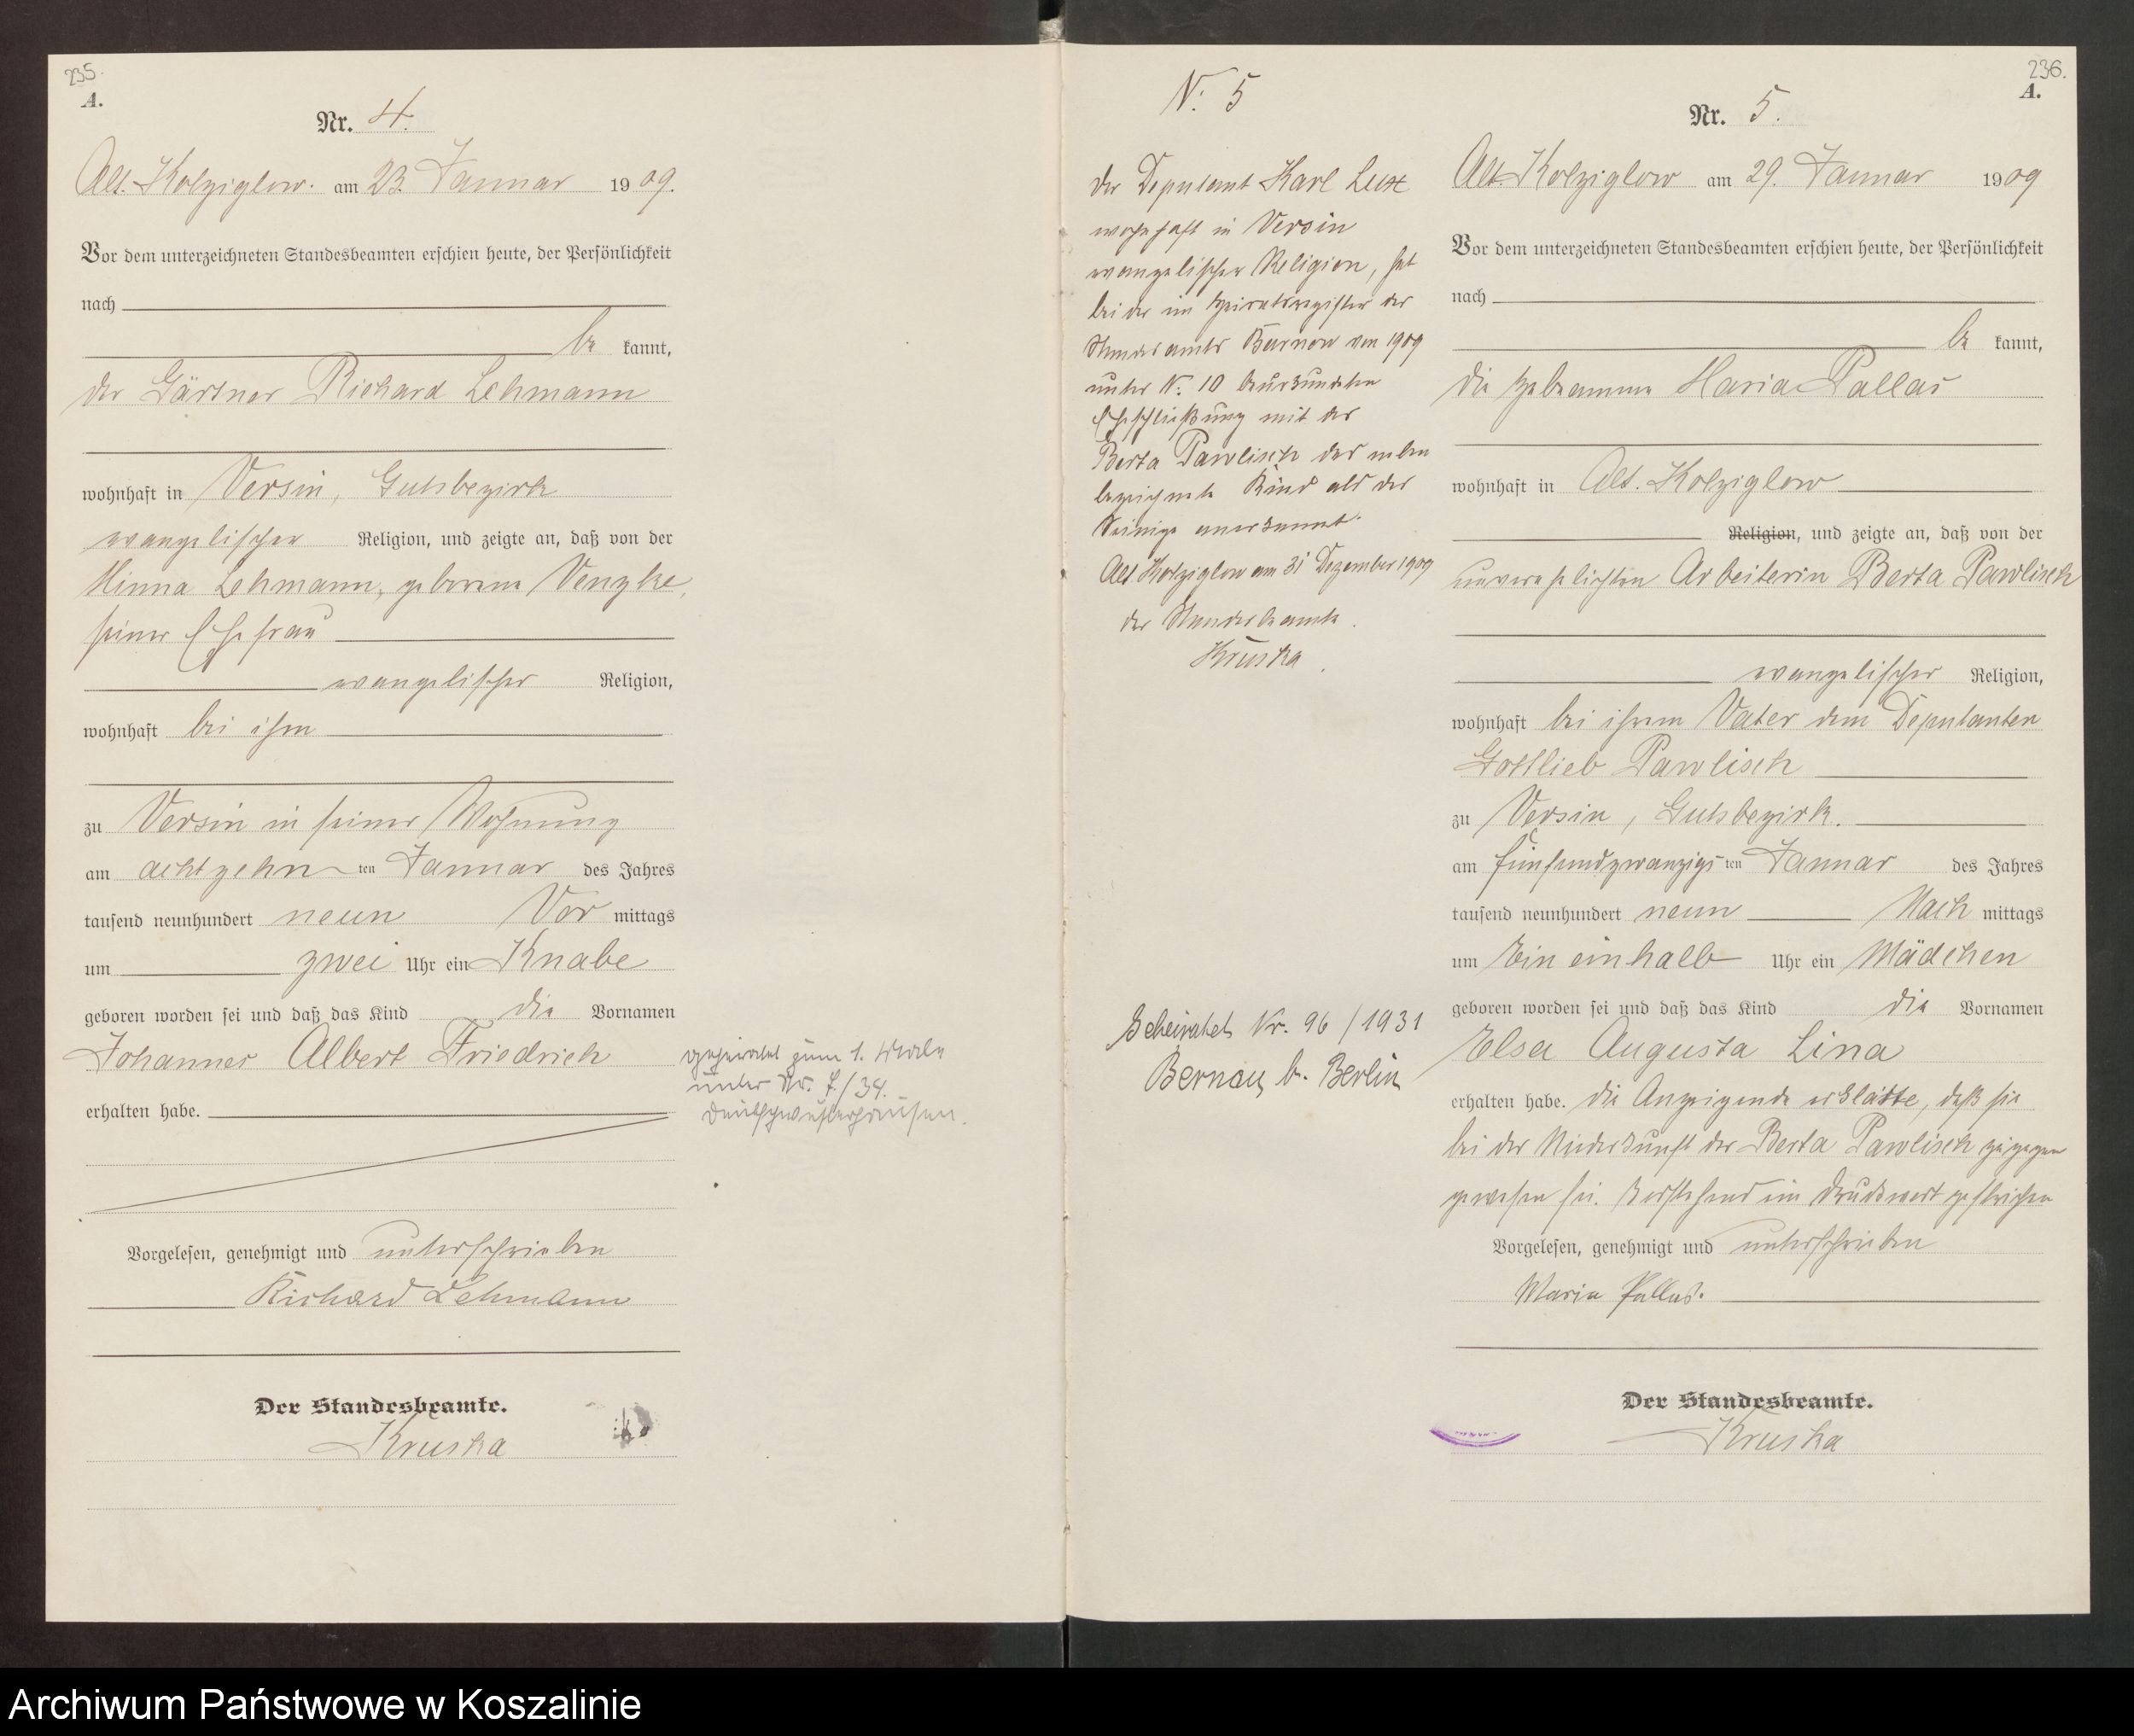 235.
A.
Nr. 4.
Alt-Kolziglow. am 23. Januar 1909.
Vor dem unterzeichneten Standesbeamten erschien heute, der Persönlichkeit
nach
be kannt,
der Gärtner Richard Lehmann
wohnhaft in Versin, Gutsbezirk
evangelischer Religion, und zeigte an, daß von der
Minna Lehmann, geborene Venzke,
seiner Ehefrau
evangelischer Religion,
wohnhaft bei ihm
zu Versin in seiner Wohnung
am achtzehn ten Januar des Jahres
tausend neunhundert neun Vor mittags
um zwei Uhr ein Knabe
geboren worden sei und daß das Kind die Vornamen
Johannes Albert Friedrich
erhalten habe.
geheiratet zum 1. Male
unter Nr. 7/34.
Deutschwusterhausen.
Vorgelesen, genehmigt und unterschrieben
Richard Lehmann
Der Standesbeamte.
Kruska
N: 5
der Deputant Karl Lux
wohnhaft in Versin
evangelischer Religion, hat
bei der im Heiratsregister des
Standesamts Barnow von 1909
unter N: 10 beurkundeten
Eheschließung mit der
Berta Pawlisch das neben
bezeichnete Kind als das
Seinige anerkannt.
Alt Kolziglow am 31 Dezember 1909
der Standesbeamte.
Kruska.
Geheiratet Nr. 96/1931
Bernau b. Berlin
236.
A.
Nr. 5.
Alt-Kolziglow am 29. Januar 1909
Vor dem unterzeichneten Standesbeamten erschien heute, der Persönlichkeit
nach
be kannt,
die Hebamme Maria Pallas
wohnhaft in Alt-Kolziglow
Religion, und zeigte an, daß von der
unverehelichten Arbeiterin Berta Pawlisch
evangelischer Religion,
wohnhaft bei ihrem Vater dem Deputanten
Gottlieb Pawlisch
zu Versin, Gutsbezirk.
am fünfundzwanzigs ten Januar des Jahres
tausend neunhundert neun Nach mittags
um Ein einhalb Uhr ein Mädchen
geboren worden sei und daß das Kind die Vornamen
Elsa Augusta Lina
erhalten habe. Die Anzeigende erklärte, daß sie
bei der Niederkunft der Berta Pawlisch zugegen
gewesen sei. Vorstehend ein Druckwort gestrichen
Vorgelesen, genehmigt und unterschrieben
Maria Pallas.
Der Standesbeamte.
Kruska
Archiwum Państwowe w Koszalinie